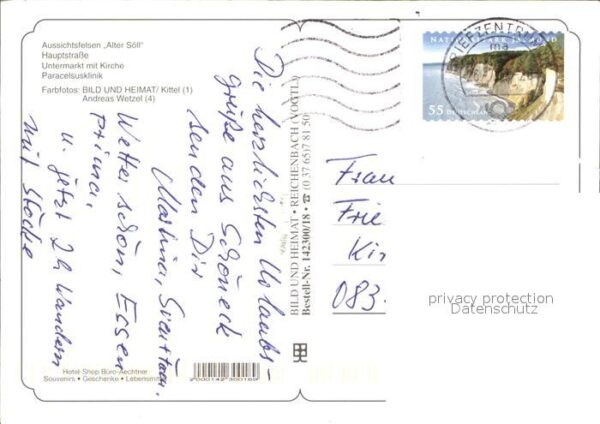 Aussichtsfelsen „Alter Söll"
Hauptstraße
Untermarkt mit Kirche
Paracelsusklinik
Farbfotos: BILD UND HEIMAT/ Kittel (1)
Andreas Wetzel (4)
Die herzlichsten Urlaubs-
grüße aus Schöneck
senden Dir
Martina,
Wetter schön, Essen
prima,
u. jetzt 2 h Wandern
mit Stöcke
Hotel-Shop Büro-Aechtner
Souvenirs • Geschenke • Lebensmittel
2000142300189
BILD UND HEIMAT • REICHENBACH (VOGTL)
Bestell-Nr. 142300/18 • ☎ (0 37 65) 7 81 50
BRIEFZENTRUM
ma
55 DEUTSCHLAND
Frau
Frie
Kir
083
privacy protection
Datenschutz